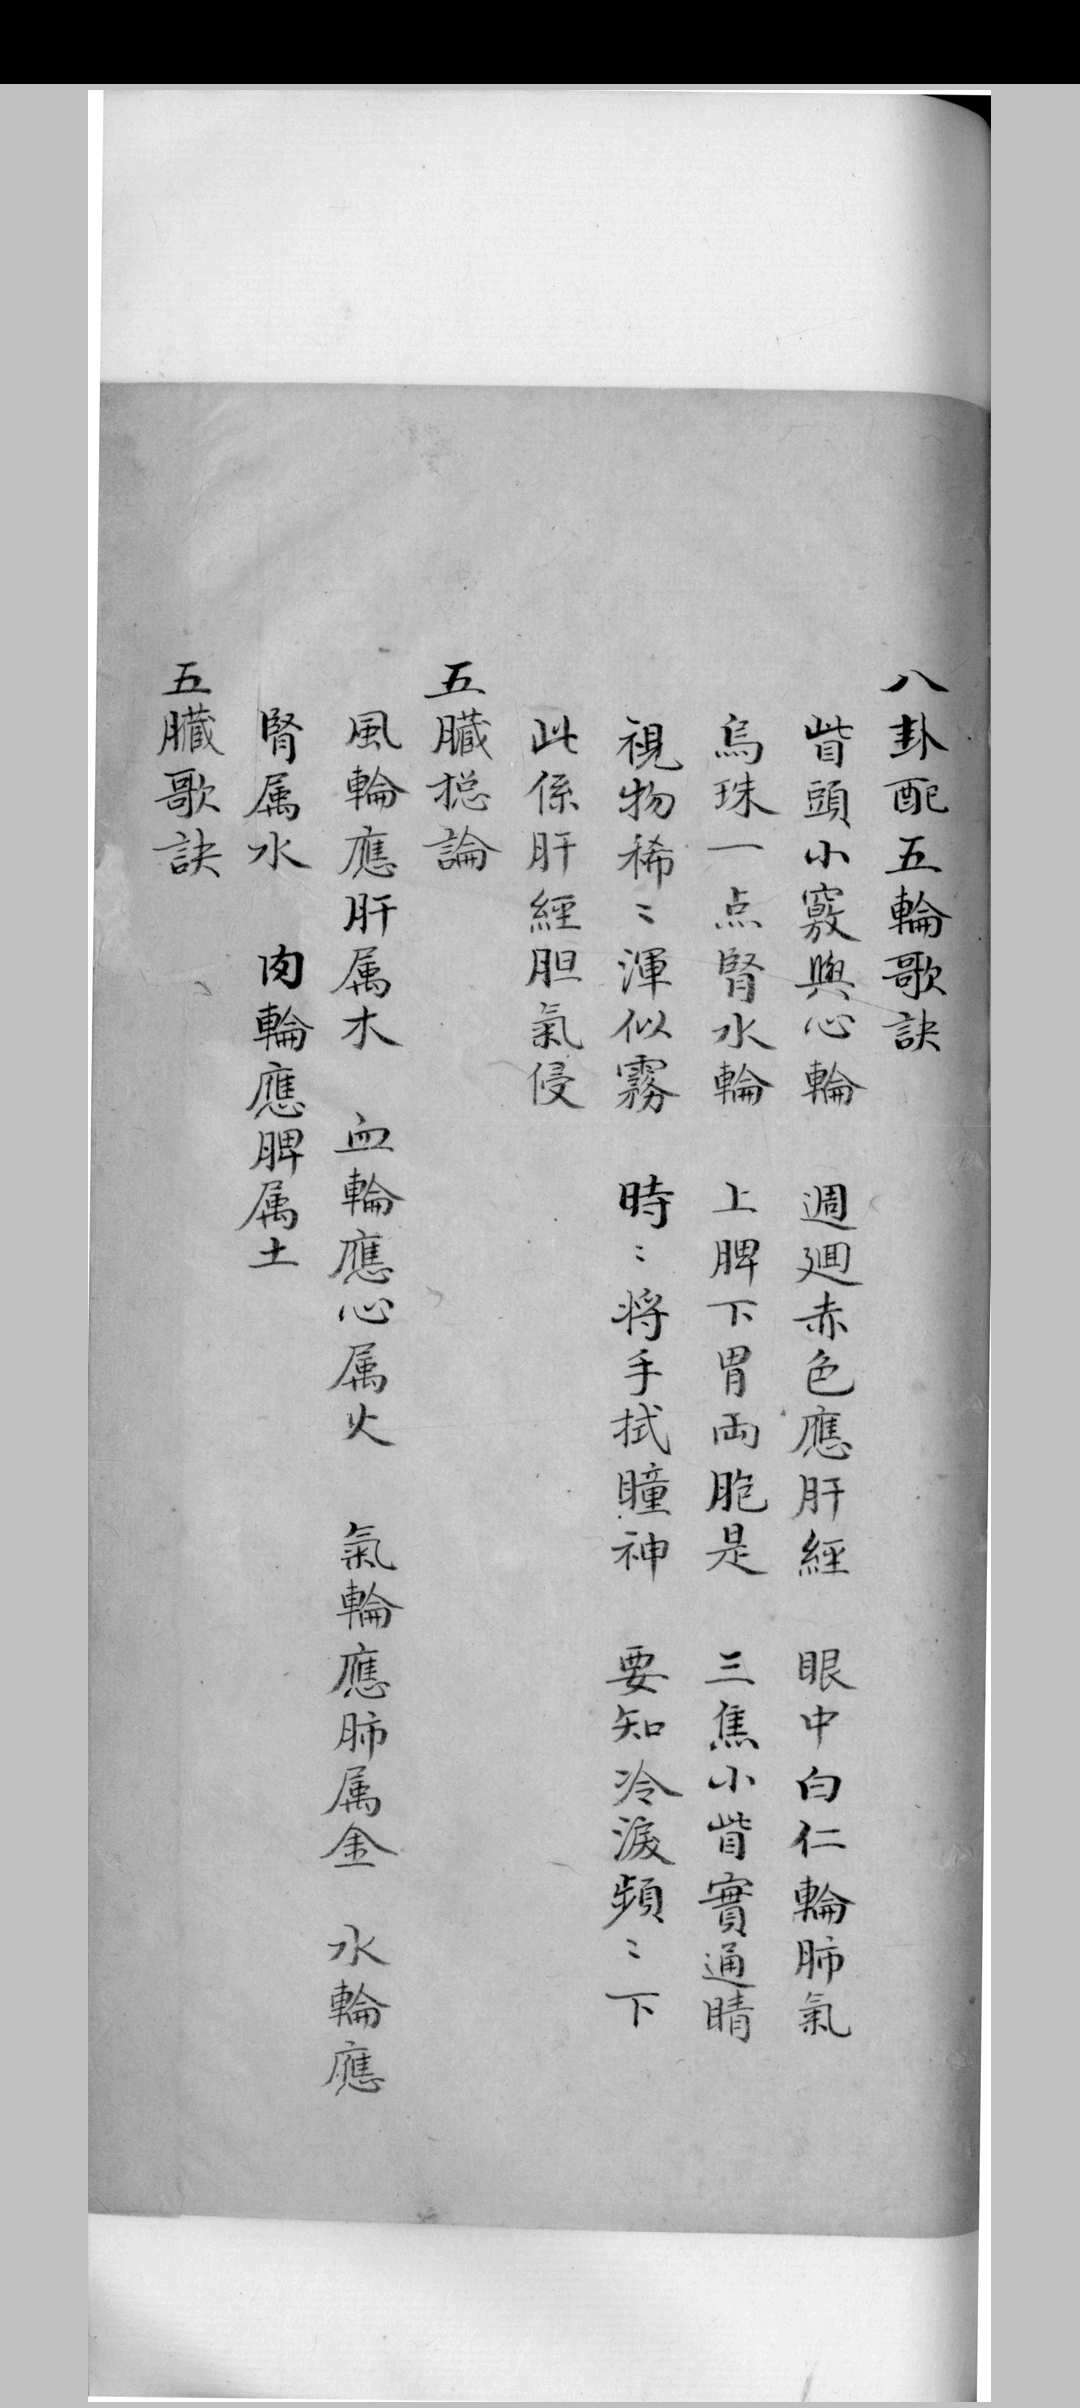 八卦配五輪歌訣
眥頭小竅與心輪　週廻赤色應肝經　眼中白仁輪肺氣
烏珠一点腎水輪　上脾下胃両胞是　三焦小眥實通睛
視物稀〻渾似霧　時〻将手拭瞳神　要知冷淚頻〻下
此係肝經胆氣侵
五臟捴論
風輪應肝属木　血輪應心属火　氣輪應肺属金　水輪應
腎属水　肉輪應脾属土
五臟歌訣